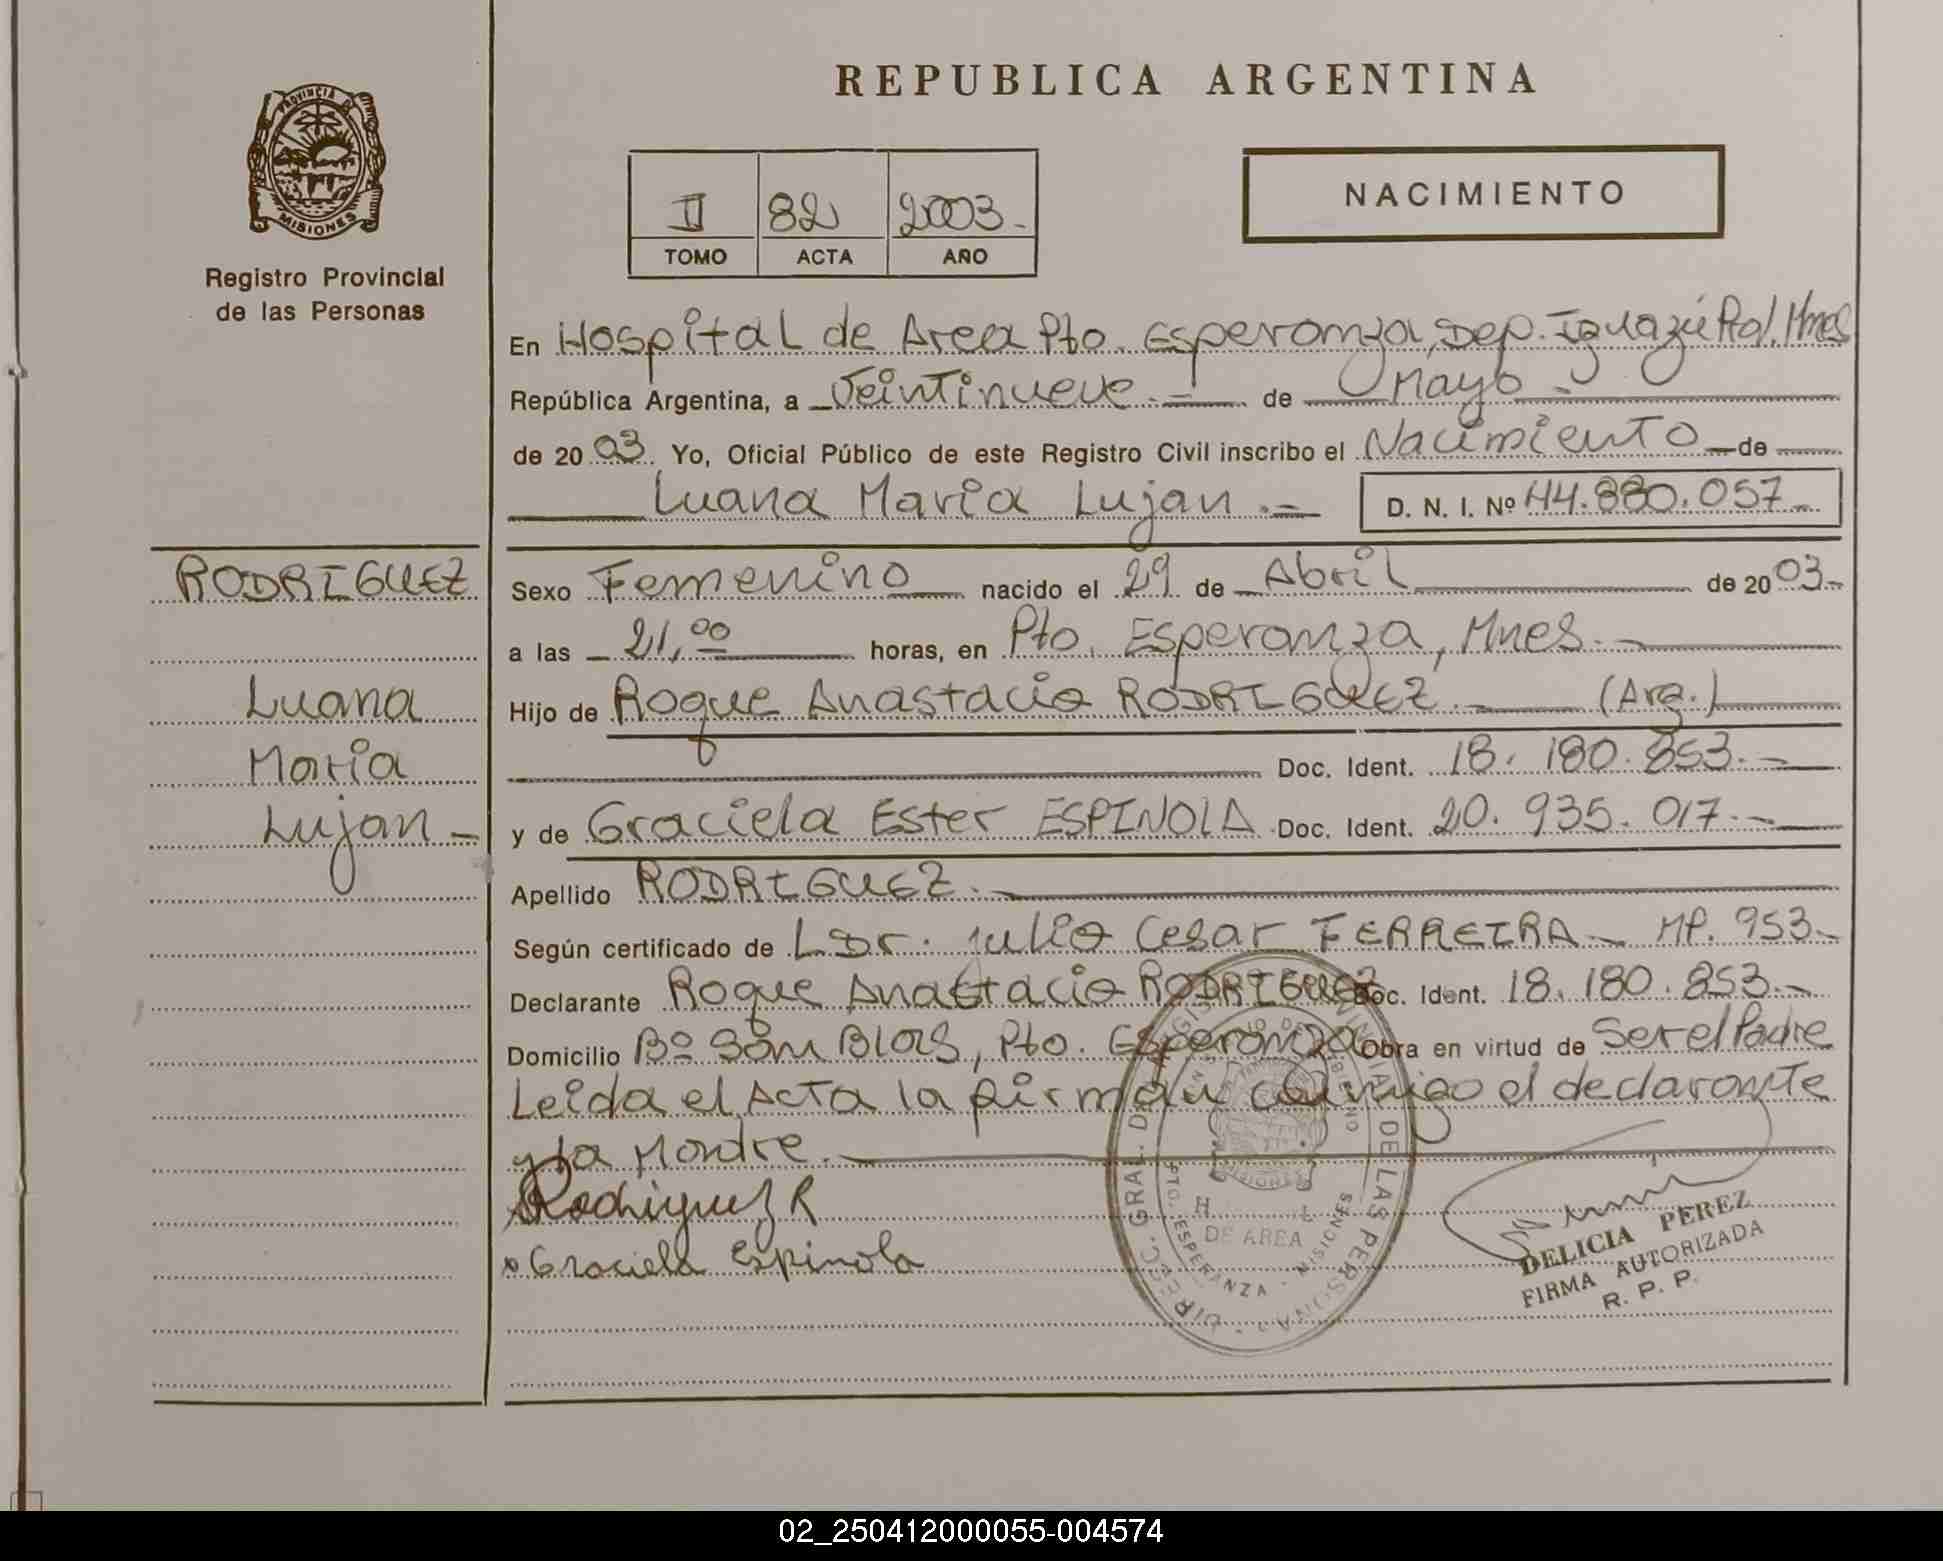 REPUBLICA ARGENTINA
PROVINCIA DE
MISIONES
Registro Provincial
de las Personas
II 82 2003.-
TOMO ACTA AÑO
NACIMIENTO
En Hospital de Area Pto. Esperanza, Dep. Iguazú Mnes
República Argentina, a Veintinueve.- de Mayo.-
de 2003. Yo, Oficial Público de este Registro Civil inscribo el Nacimiento de
Luana Maria Lujan.- D. N. I. Nº 44.880.057.-
RODRIGUEZ
Luana
Maria
Lujan -
Sexo Femenino nacido el 29 de Abril de 2003.-
a las 21,00 horas, en Pto. Esperanza, Mnes.-
Hijo de Roque Anastacio RODRIGUEZ.- (Arg.)
Doc. Ident. 18.180.853.-
y de Graciela Ester ESPINOLA Doc. Ident. 20.935.017.-
Apellido RODRIGUEZ.-
Según certificado de Dr. Julio Cesar FERREIRA - MP. 953-
Declarante Roque Anastacio RODRIGUEZ Doc. Ident. 18.180.853.-
Domicilio Bº San Blas, Pto. Esperanza Obra en virtud de Ser el Padre
Leida el Acta la firman conmigo el declarante
y la Madre.
Rodriguez R
Graciela Espinola
DE AREA
PTO. ESPERANZA - MISIONES
DELICIA PEREZ
FIRMA AUTORIZADA
R. P. P.
02_250412000055-004574